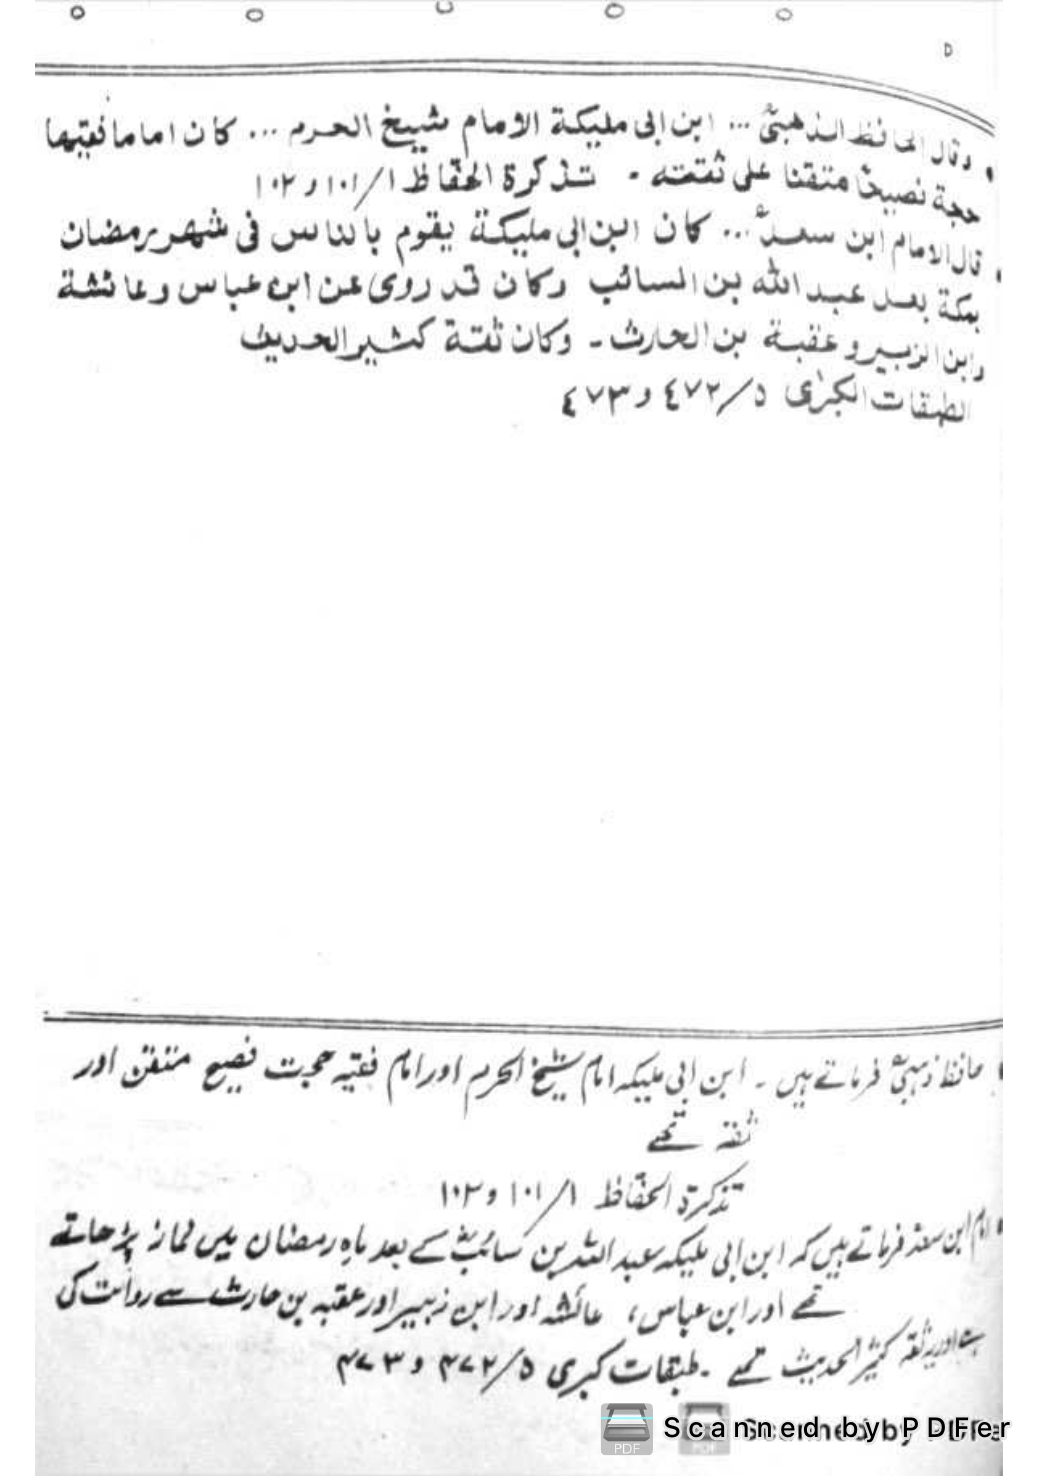 وقال الحافظ الذهبیؒ ... ابن ابی ملیکة الامام شیخ الحرم ... کان اماما فقیها
حجة فصیحا متقنا علی ثقته ۔ تذکرة الحفاظ ١/١٠١ و ١٠٢
قال الامام ابن سعدؒ ... کان ابن ابی ملیکة یقوم بالناس فی شهر رمضان
بمکة بعد عبد الله بن السائب وکان قد روی عن ابن عباس وعائشة
وابن الزبیر وعقبة بن الحارث ۔ وکان ثقة کثیر الحدیث
الطبقات الکبرٰی ٥/٤٧٢ و ٤٧٣
حافظ ذہبیؒ فرماتے ہیں ۔ ابن ابی ملیکہ امام شیخ الحرم اور امام فقیہ حجت فصیح متقن اور
ثقہ تھے
تذکرة الحفاظ ١/١٠١ و ١٠٢
امام ابن سعدؒ فرماتے ہیں کہ ابن ابی ملیکہ عبد اللہ بن سائبؓ کے بعد ماہِ رمضان میں نماز پڑھاتے
تھے اور ابن عباس، عائشہ اور ابن زبیر اور عقبہ بن حارث سے روائت کی
ہے اور یہ ثقہ کثیر الحدیث تھے ۔ طبقات کبری ٥/۴۷۲ و ۴۷۳
Scanned by PDFer